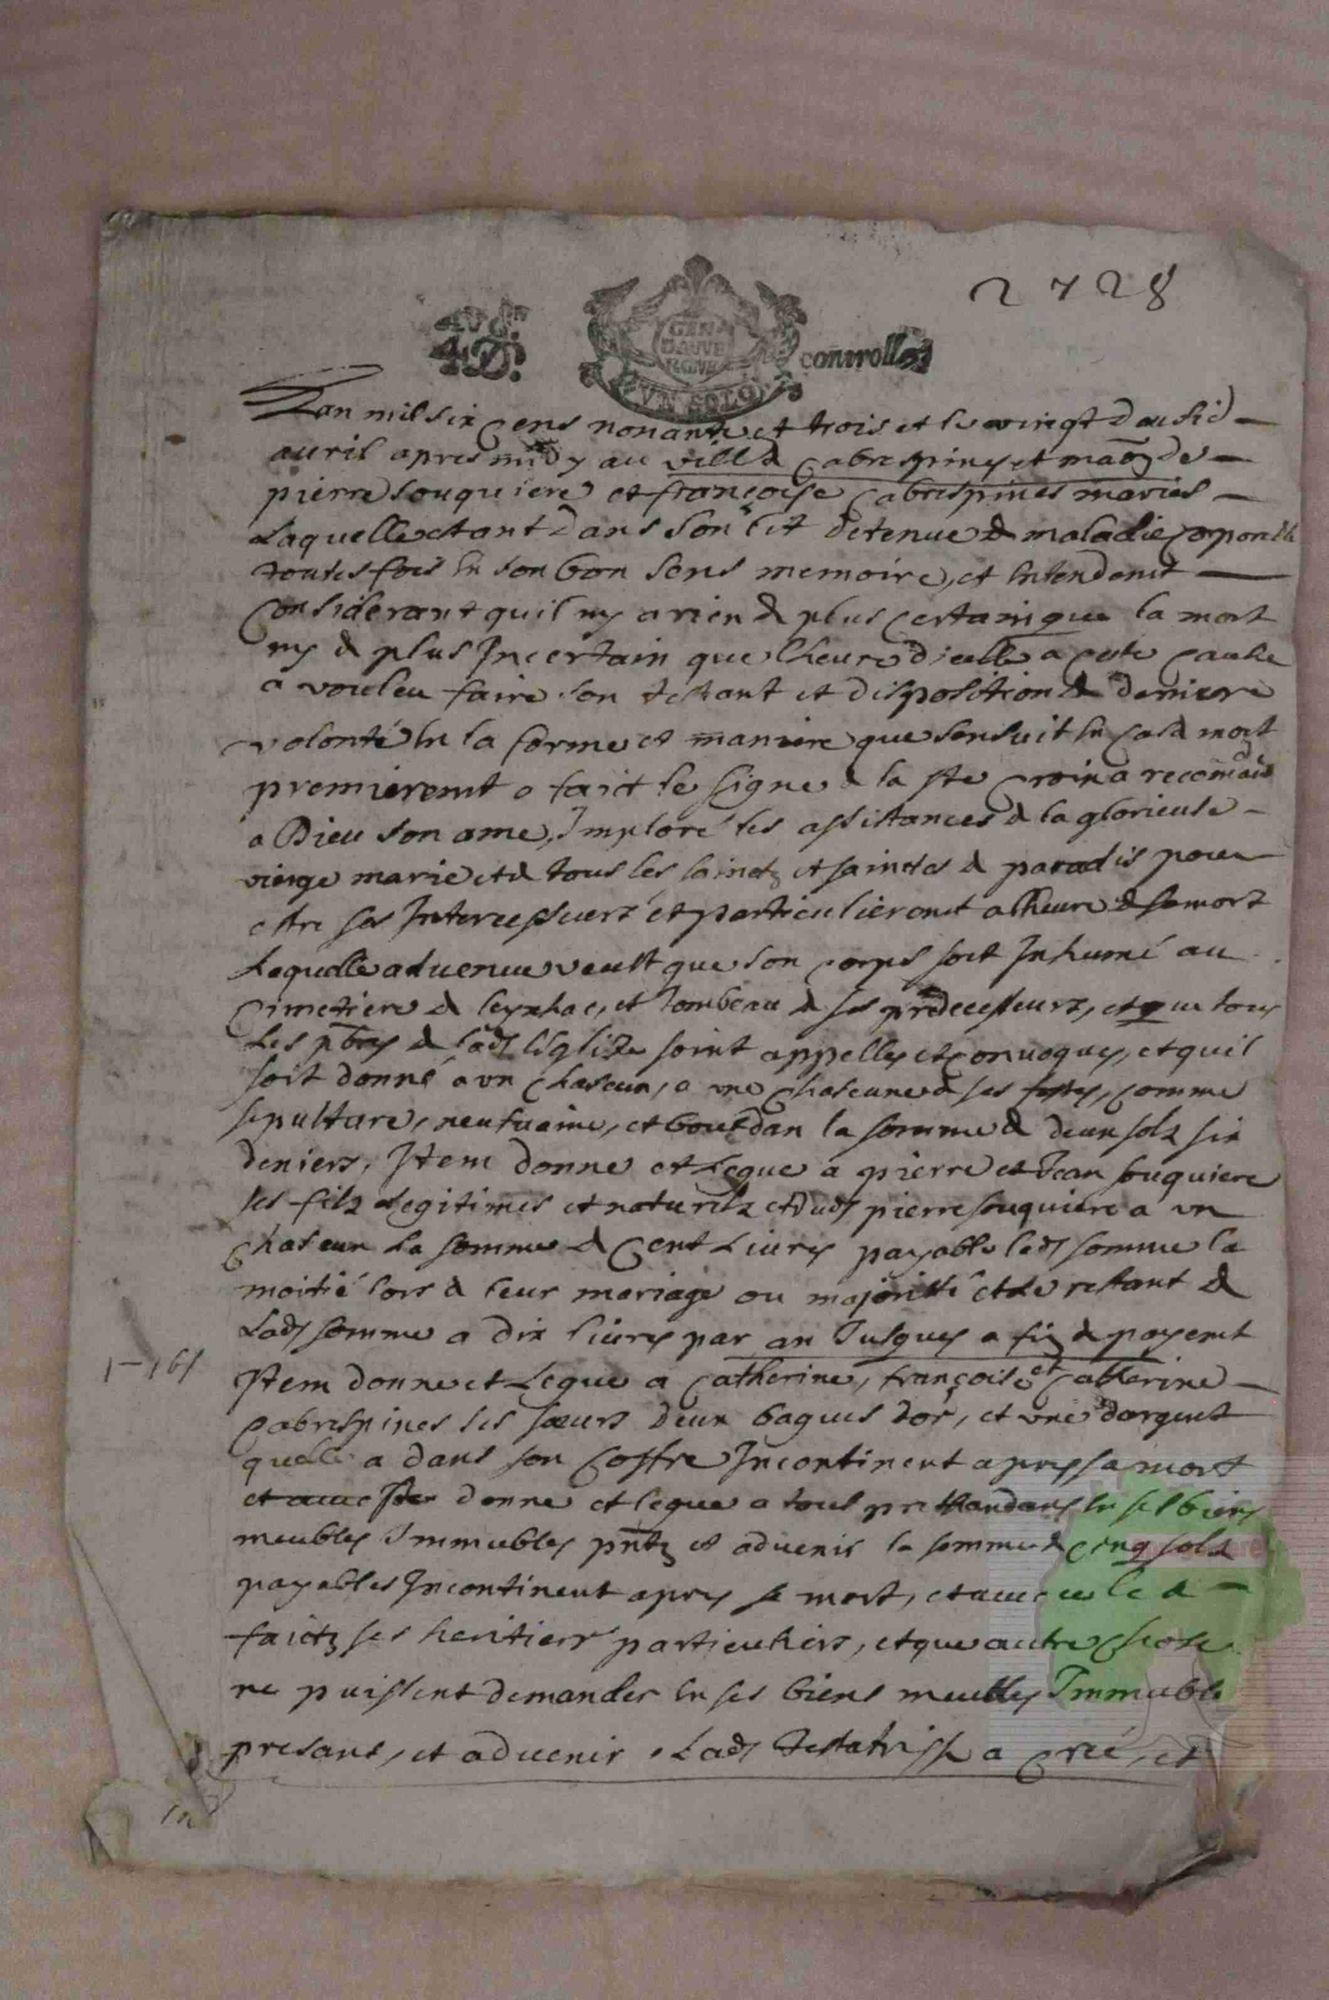 2728
AVG.N
4.D.
GEN.
DAUVE
RGNE
VN SOLO
controllé
Lan mil six cens nonante et trois et le vingt deusid
auril apres midy au vill & Cabrespines et maon de
pierre souquiere et françoise Cabrespines maries
Laquelle estant dans son lit detenue & maladie corporelle
toutesfois en son bon sens memoire, et entendemt
Considerant quil ny a rien & plus certain que la mort
ny & plus Incertain que lheure dicelle a cete cause
a vouleu faire son testmant et disposition & derniere
volonté en la forme et maniere que sensuit en cas & mort
premieremt a faict le signe & la ste Croix a recomandé
a Dieu son ame, Imploré les assistances & la glorieuse
vierge marie et & tous les sainctz et sainctes & paradis pour
estre ses Intercesseurs et particulieremt a lheure & sa mort
Laquelle aduenue veult que son corps soit Inhumé au
Cimetiere & leynhac, et tombeau & ses predecesseurs, et que tous
Les pbres & lade Esglize soint appelles et convoques, et quil
soit donné a vn chascun, a vne chascune & ses festes, comme
sepulture, neufvaine, et bout dan la somme & deux solz six
deniers, Item donne et Legue a pierre et Jean souquiere
ses filz Legitimes et naturelz et dud pierre souquiere a vn
Chascun La somme & Cent Liures payable lad somme la
moitié lors & leur mariage ou majorité et le restant &
Lad somme a dix liures par an Jusques a fin & payemt
1-161
Item donne et Legue a Catherine, françoise et Catherine
Cabrespines ses sœurs deux bagues dor, et vne dargent
quelle a dans son Coffre Incontinent apres sa mort
donne et legue a tous prethandans en ses biens
meubles Immeubles pntz et aduenir la somme & Cinq solz
payables Incontinent apres sa mort, et auec ce le a
faictz ses heritiers particuliers, et que autre chose
ne puissent demander en ses biens meubles Immeubles
presans, et aduenir. Lad Testatrisse a Créé, et